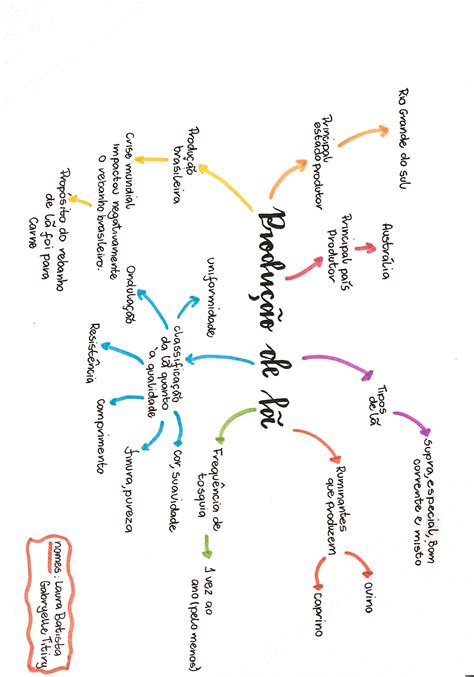 Produção de lã
Rio Grande do sul
Principal
estado produtor
Austrália
Principal país
Produtor
Tipos
de lã
Supra, especial, Bom
corrente e misto
Ruminantes
que produzem
ovino
caprino
Frequência de
tosquia
1 vez ao
ano (pelo menos)
classificação
da lã quanto
à qualidade
uniformidade
Ondulação
Resistência
Comprimento
finura, pureza
cor, suavidade
Produção
brasileira
Crise mundial
impactou negativamente
o rebanho brasileiro.
Propósito do rebanho
de lã foi para
Carne
nomes: Laura Batista
Gabryelle Titiry